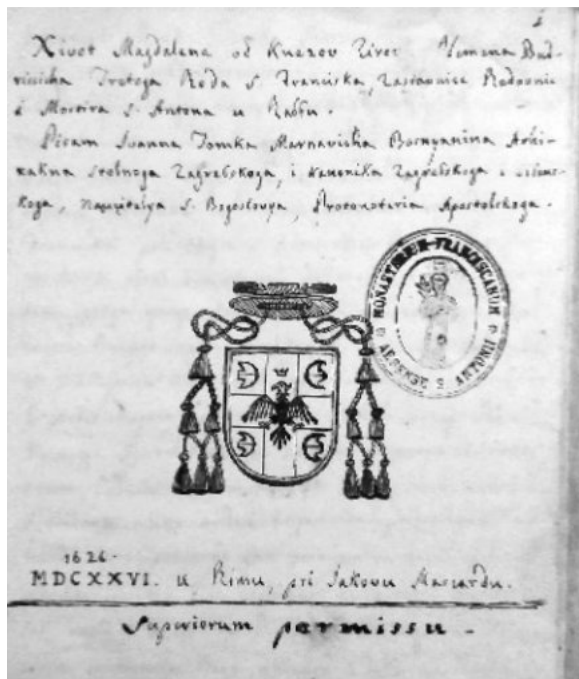 Xivot Magdalena od Knezov Zirov Vemena Bud-
rissicha Tretoga Reda S. Franciska,
i Mostira S. Antona u Rabbu.
Pisam Ivanna Tomka Marnavicha Bosnyanina Arhi-
xakna stolnoga Zagrebskoga, i kanonika Zagrebskoga i
koga, nauçitelya S. Bogoslovya, Protonotaria Apostolskoga.
MONASTERIUM FRANCISCANUM
ARBENSE S. ANTONII
1626
MDCXXVI. u Rimu, pri Jakovu Mascardu.
Superiorum permissu.